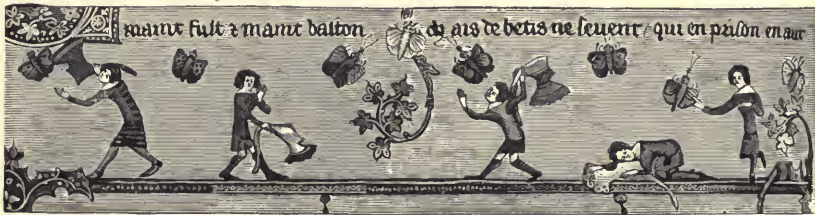 maint fust & maint baston de ais de betis ne seuent / qui en prison en aut